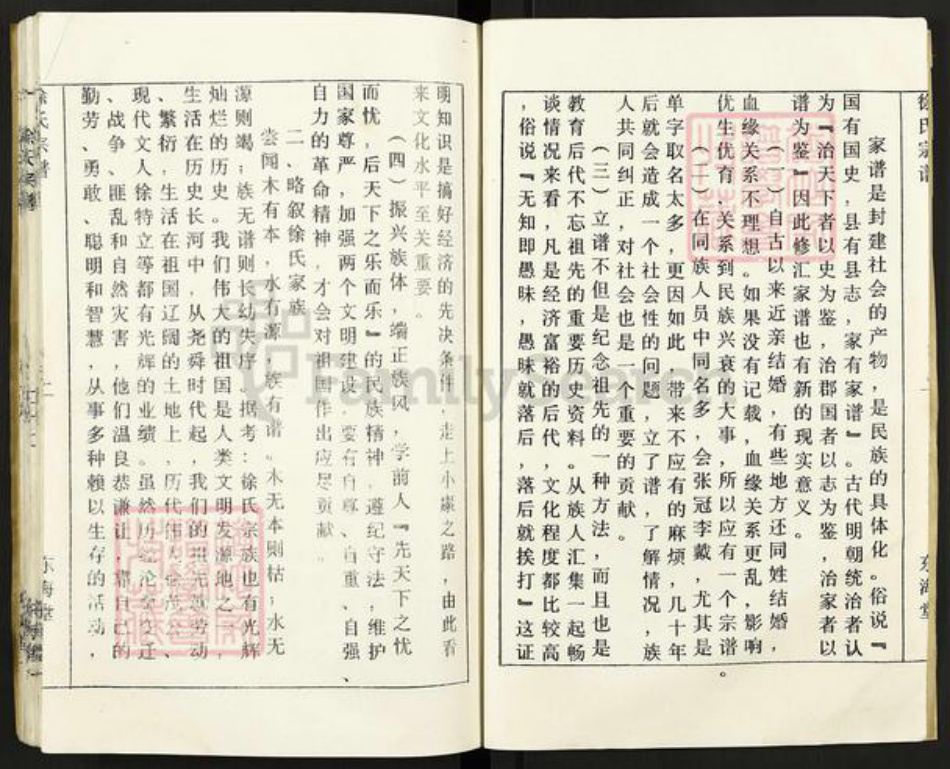 徐氏宗谱
东海堂
家谱是封建社会的产物，是民族的具体化。俗说『
国有国史，县有县志，家有家谱』。古代明朝统治者认
为『治天下者以史为鉴，治郡国者以志为鉴，治家者以
谱为鉴』因此修汇家谱也有新的现实意义。
（一）自古以来近亲结婚，有些地方还同姓结婚，
血缘关系不理想。如果没有记载，血缘关系更乱，影响
优生优育、关系到民族兴衰的大事，所以应有一个宗谱。
（二）在同族人员中同名多，会张冠李戴，尤其是
单字取名太多，更因如此，带来不应有的麻烦，几十年
后就会造成一个社会性的问题，立了谱，了解情况，族
人共同纠正，对社会也是一个重要的贡献。
（三）立谱不但是纪念祖先的一种方法，而且也是
教育后代不忘祖先的重要历史资料。从族人汇集一起畅
谈情况来看，凡是经济富裕的后代，文化程度都比较高
，俗说『无知即愚昧，愚昧就落后，落后就挨打』这证
明知识是搞好经济的先决条件，走上小康之路，由此看
来文化水平至关重要。
（四）振兴族体，端正族风，学前人『先天下之忧
而忧，后天下之乐而乐』的民族精神，遵纪守法，维护
国家尊严，加强两个文明建设，要有自尊、自重、自强、
自力的革命精神，才会对祖国作出应尽贡献。
二、略叙徐氏家族
尝闻木有本，水有源，族有谱。木无本则枯；水无
源则竭；族无谱则长幼失序。据考：徐氏宗族也有光辉
灿烂的历史。我们伟大的祖国是人类文明发源地之一，
生活在历史长河中，从尧舜时代起，我们的祖先就劳动
、繁衍，生活在祖国辽阔的土地上，历代伟人
现代文人徐特立等都有光辉的业绩。虽然历经沧桑变迁
、战争、匪乱和自然灾害，他们温良恭谦让，靠自己的
勤劳、勇敢、聪明和智慧，从事多种赖以生存的活动，
徐氏宗谱
东海堂